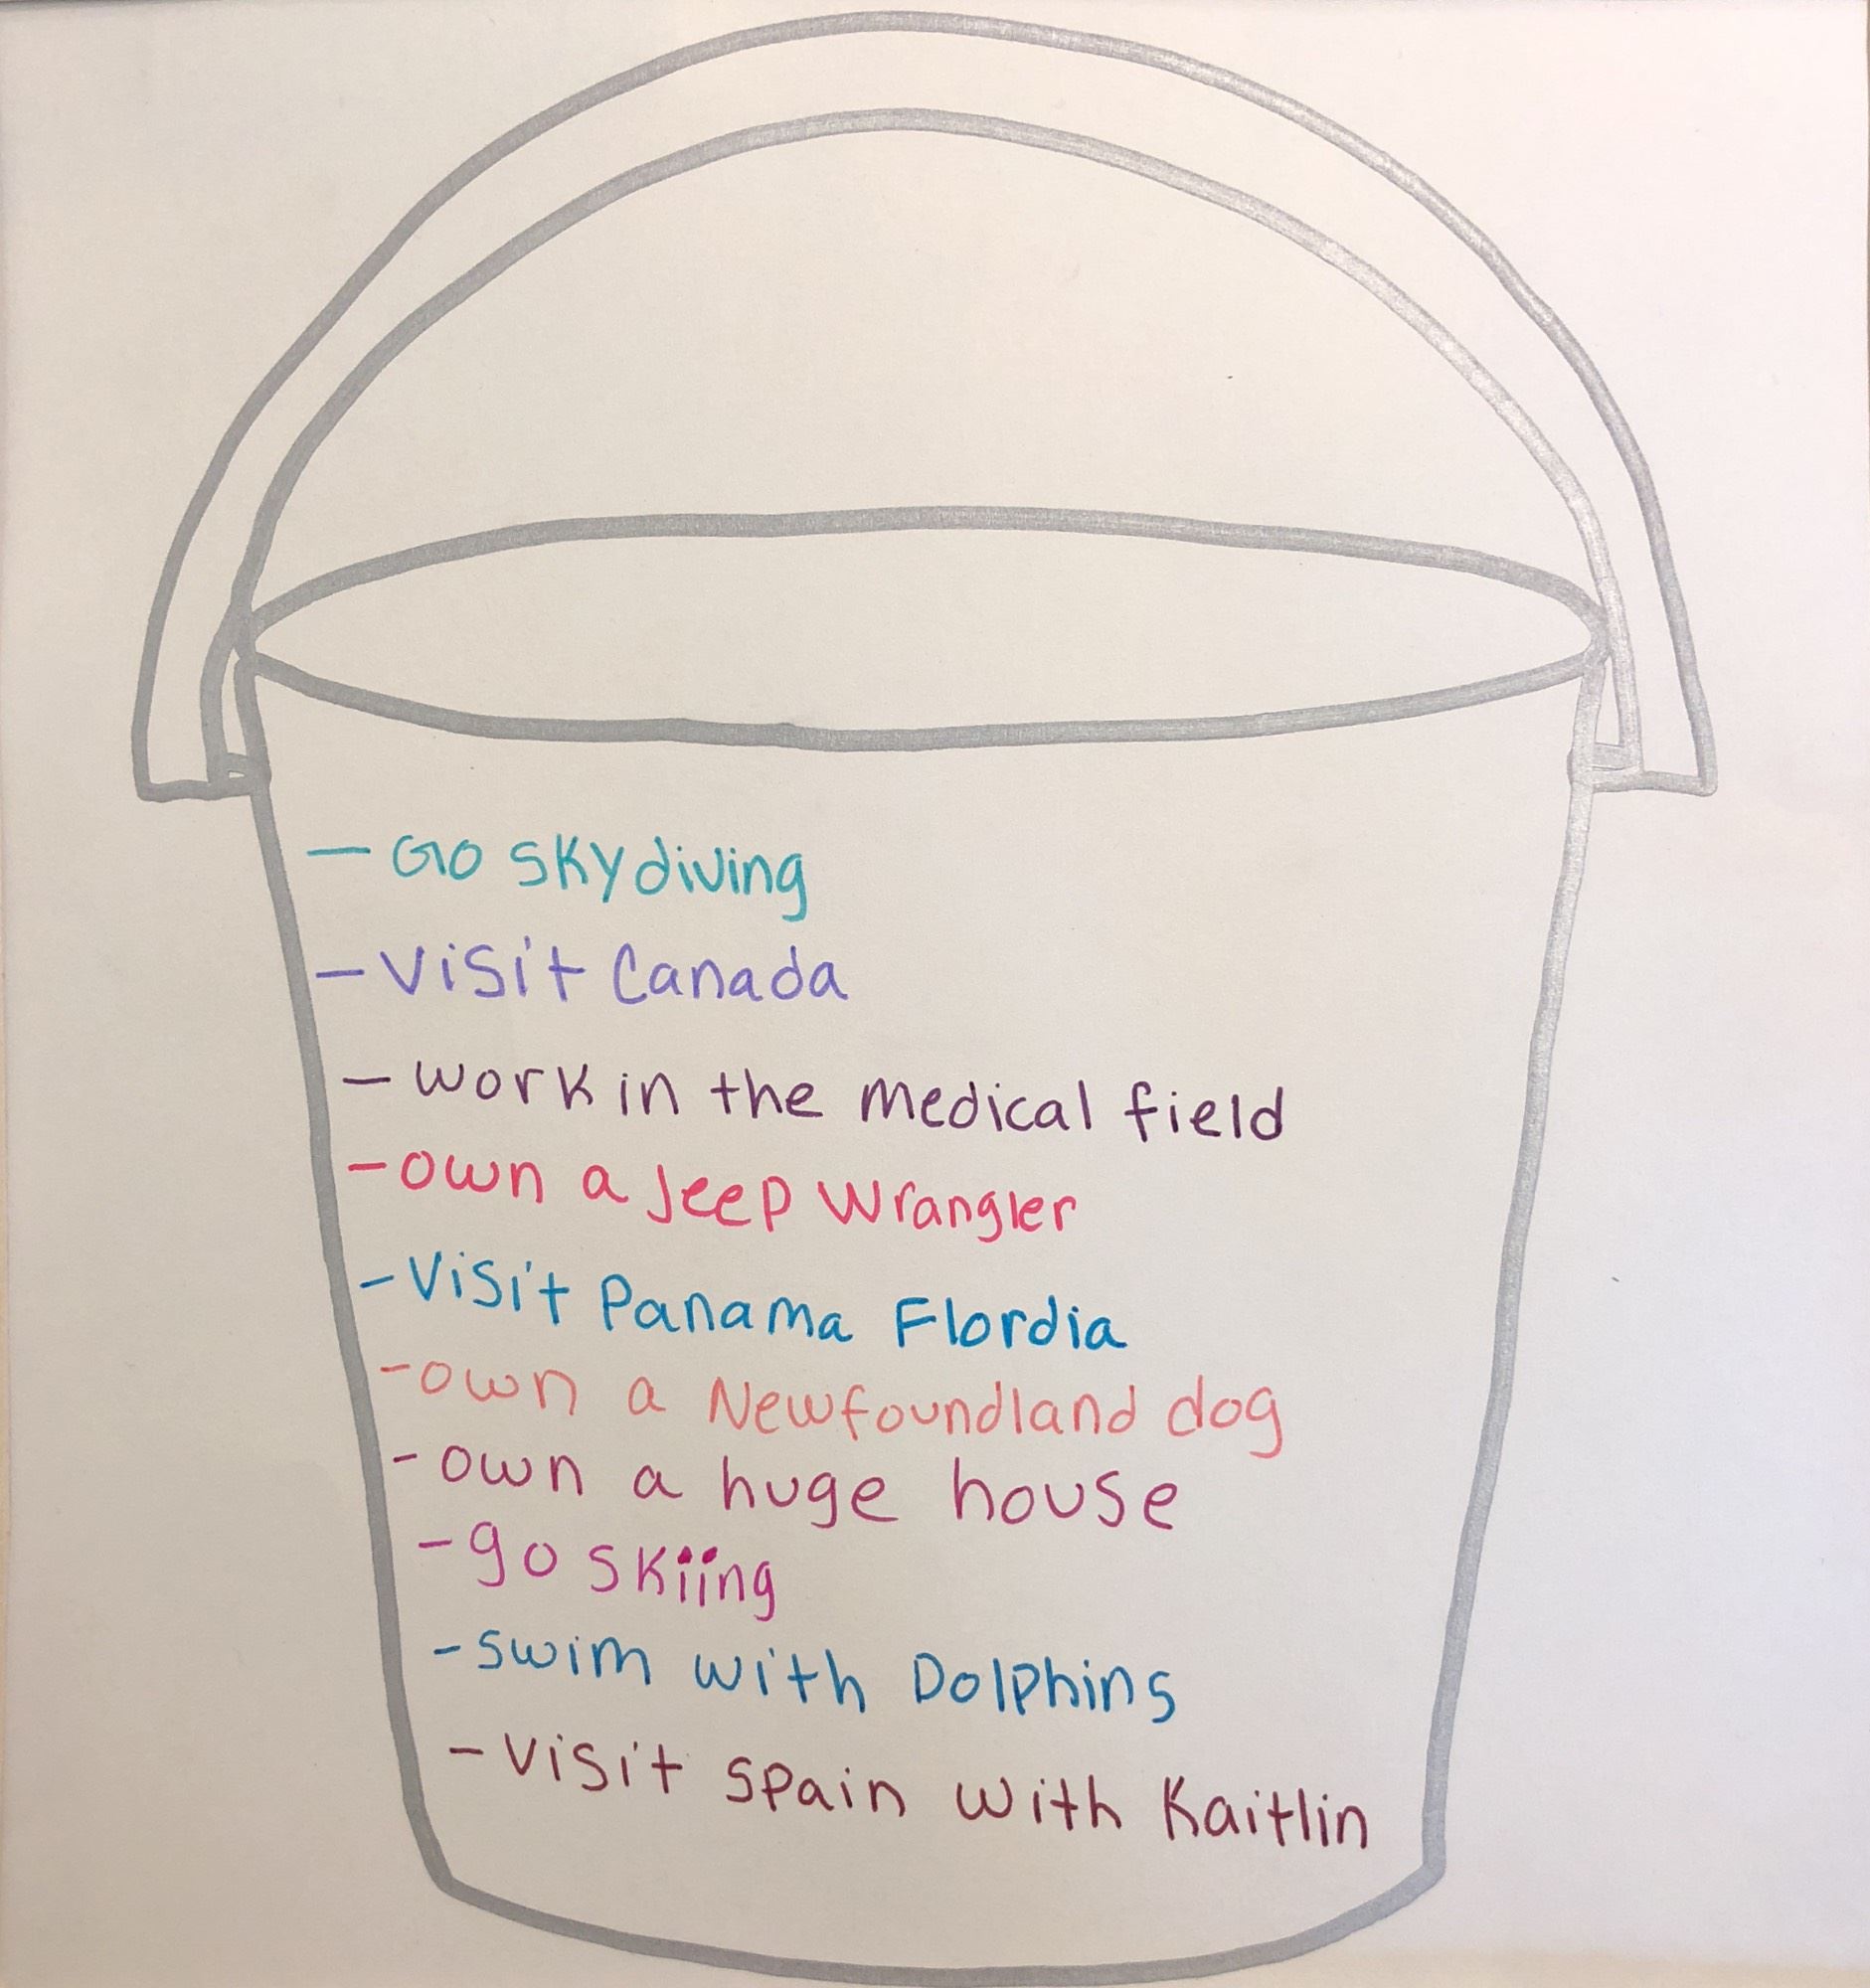 - Go skydiving
- Visit Canada
- work in the medical field
- own a Jeep Wrangler
- Visit Panama Flordia
- own a Newfoundland dog
- own a huge house
- go skiing
- swim with Dolphins
- visit spain with Kaitlin